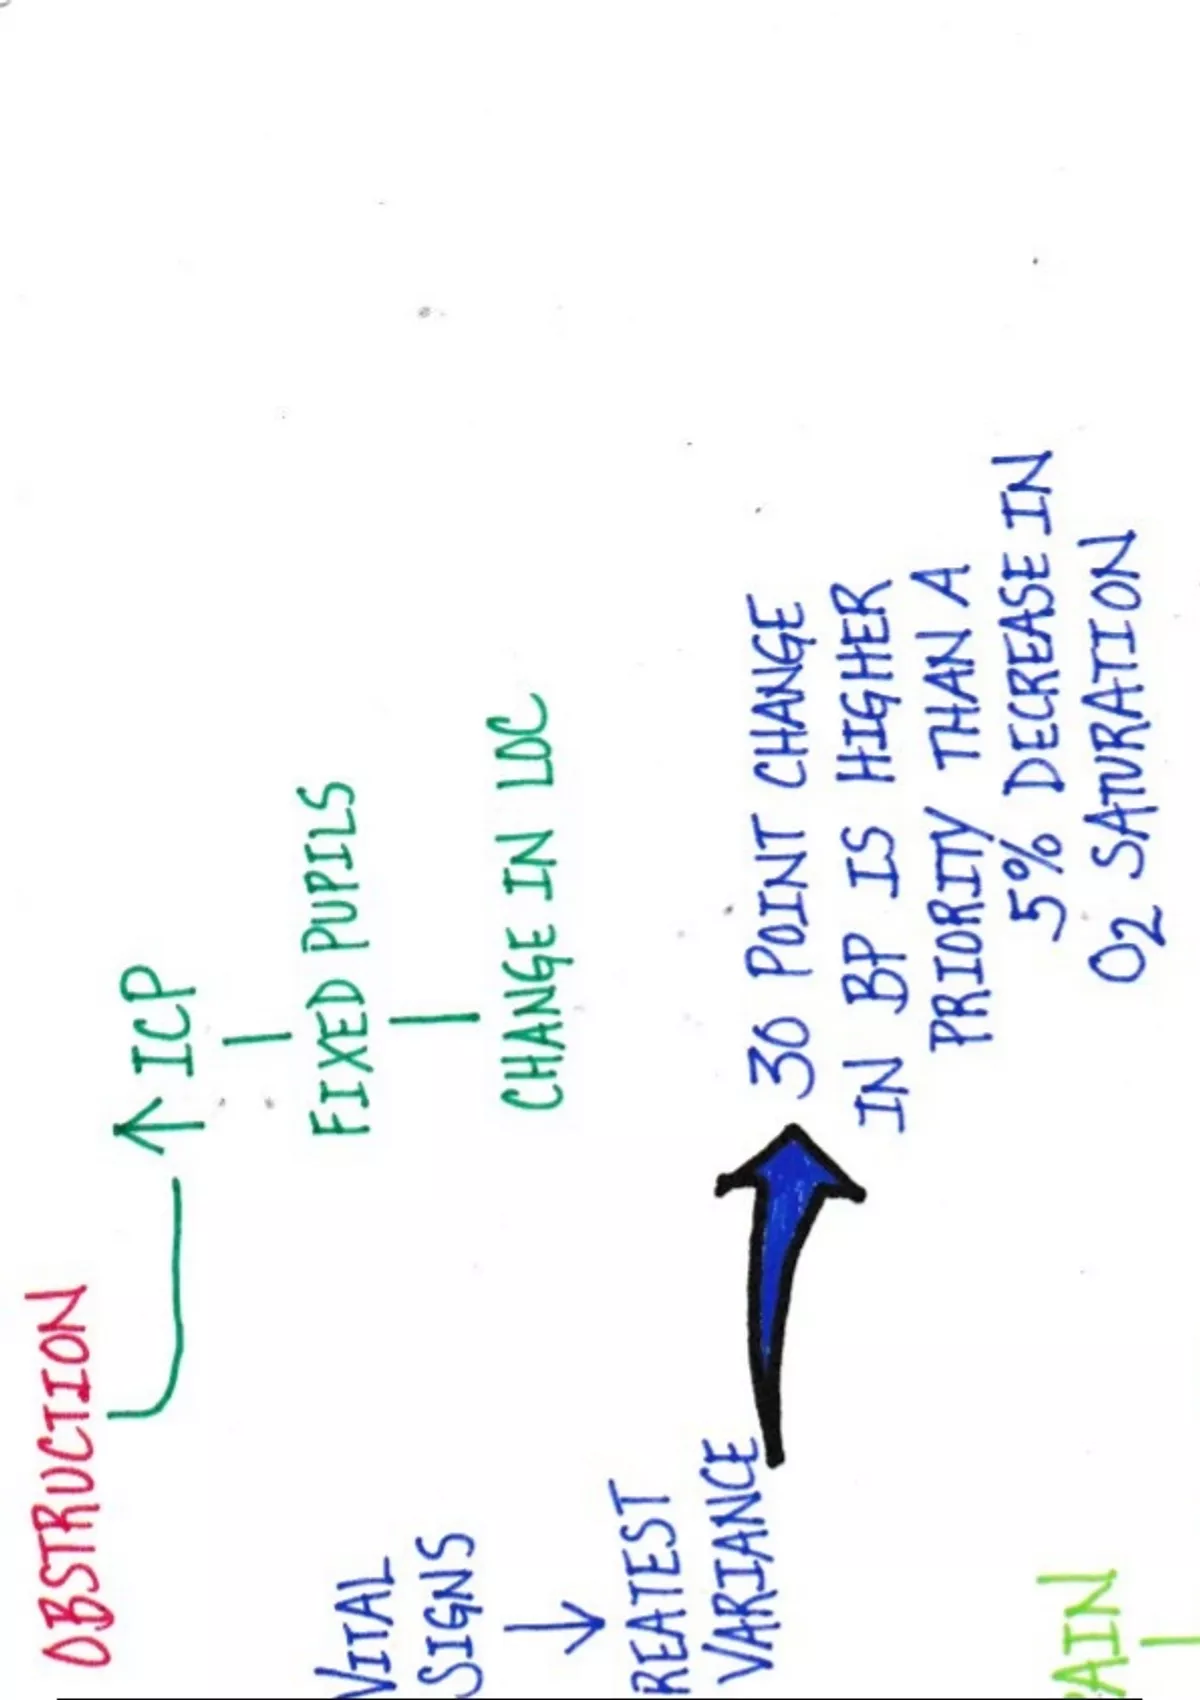 OBSTRUCTION
↑ ICP
FIXED PUPILS
CHANGE IN LOC
VITAL
SIGNS
↓
REATEST
VARIANCE
30 POINT CHANGE
IN BP IS HIGHER
PRIORITY THAN A
5% DECREASE IN
O2 SATURATION
AIN